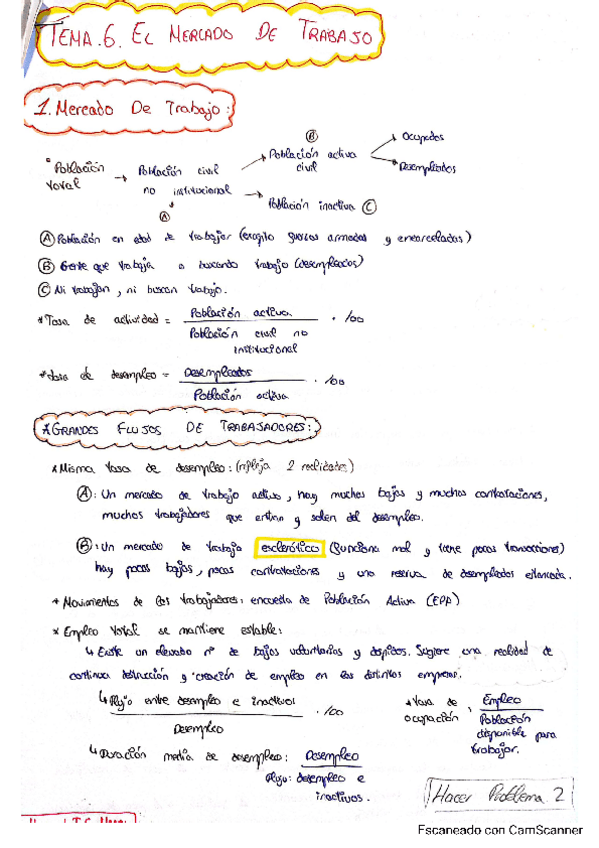 TEMA.6. EL MERCADO DE TRABAJO
1. Mercado De Trabajo:
Población total → Población civil no institucional → Población activa civil → Ocupados
Desempleados
Población inactiva
(A) (B) (C)
(A) Población en edad de trabajar (excepto fuerzas armadas y encarcelados)
(B) Gente que trabaja o buscando trabajo (desempleados)
(C) Ni trabajan, ni buscan trabajo.
*Tasa de actividad = Población activa / Población civil no institucional · 100
*tasa de desempleo = Desempleados / Población activa · 100
*GRANDES FLUJOS DE TRABAJADORES:
*Misma tasa de desempleo: (refleja 2 realidades)
(A): Un mercado de trabajo activo, hay muchas bajas y muchas contrataciones,
muchos trabajadores que entran y salen del desempleo.
(B): Un mercado de trabajo esclerótico (funciona mal y tiene pocas transacciones)
hay pocas bajas, pocas contrataciones y una reserva de desempleados estancada.
* Movimientos de los trabajadores: encuesta de Población Activa (EPA)
* Empleo total se mantiene estable:
↳ Existe un elevado nº de bajas voluntarias y despidos. Sugiere una realidad de
continua destrucción y creación de empleo en las distintas empresas.
↳ Flujo entre desempleo e inactivos / Desempleo · 100
*Tasa de ocupación: Empleo / Población disponible para trabajar.
↳ Duración media de desempleo: Desempleo / Flujo: desempleo e inactivos.
Hacer Problema 2
Escaneado con CamScanner